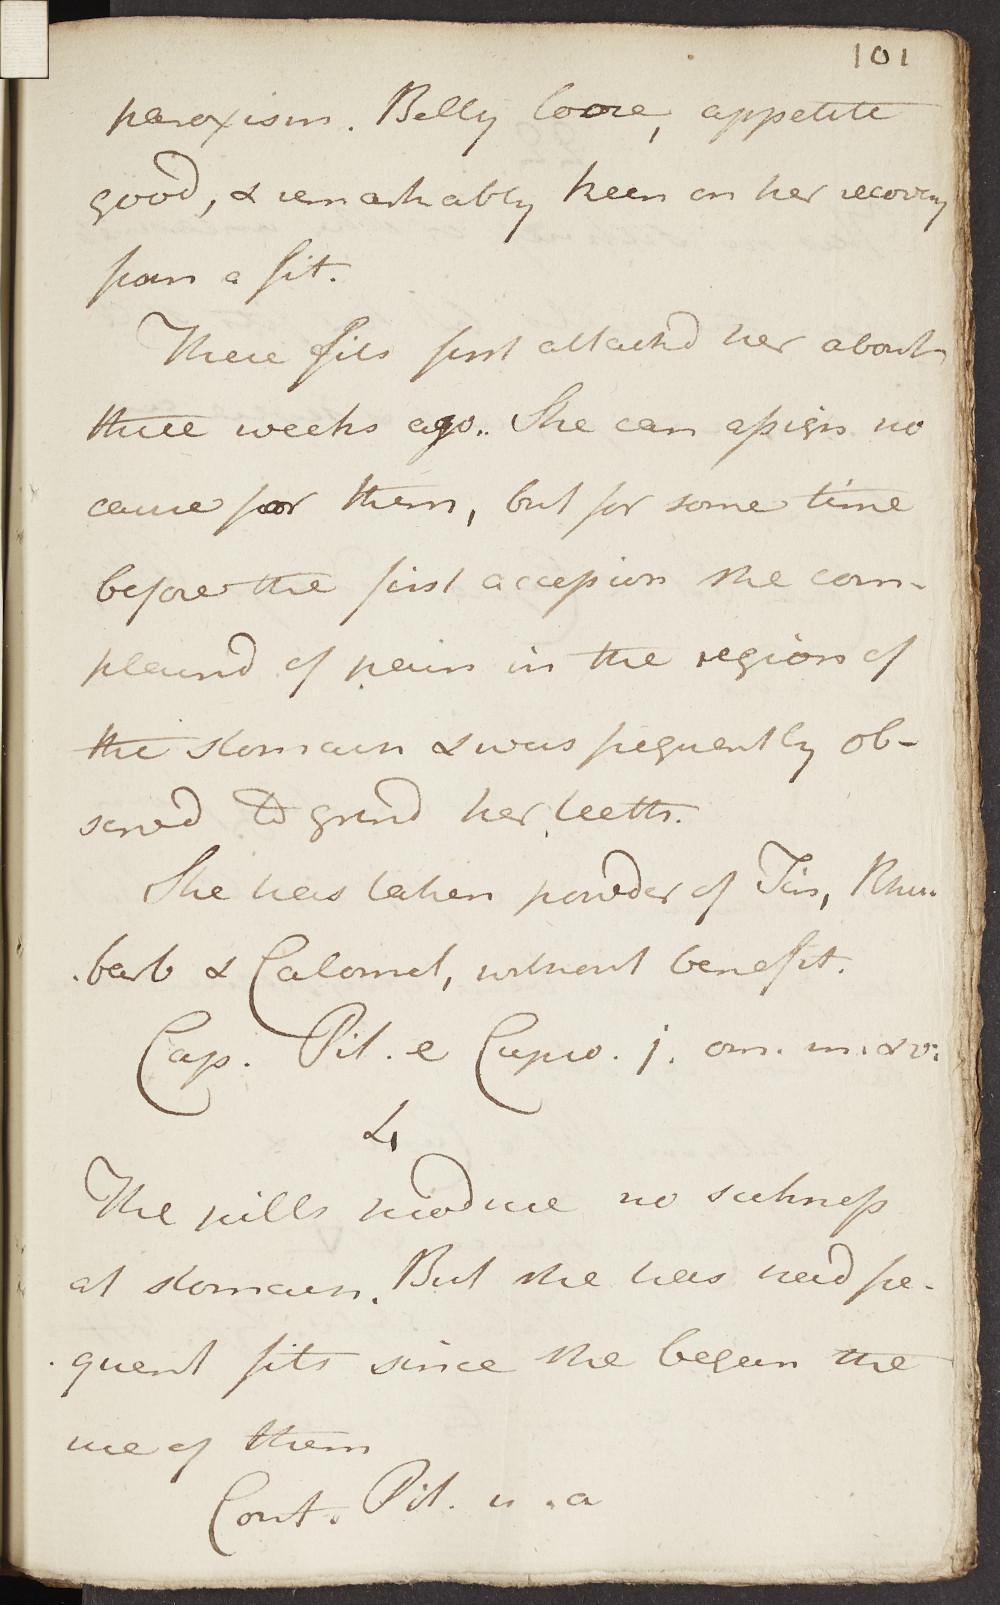 101
paroxism. Belly loose, appetite
good, & remarkably keen on her recovery
from a fit.
These fits first attackd her about
three weeks ago. She can assign no
cause for them, but for some time
before the first accession she com-
plaind of pain in the region of
the stomach & was frequently ob-
servd to grind her teeth.
She has taken powder of Tin, Rhu-
barb & Calomel, without benefit.
Cap. Pil. e Cupro. j. om. m. & v.
The pills produce no sickness
at stomach. But she has had fre-
quent fits since she began the
use of them
Cont. Pil. u. a